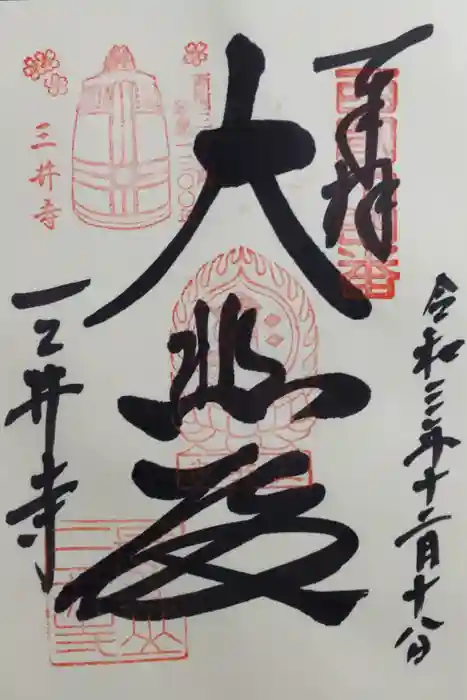 奉拝
令和三年十二月十八日
大悲殿
三井寺
三井寺